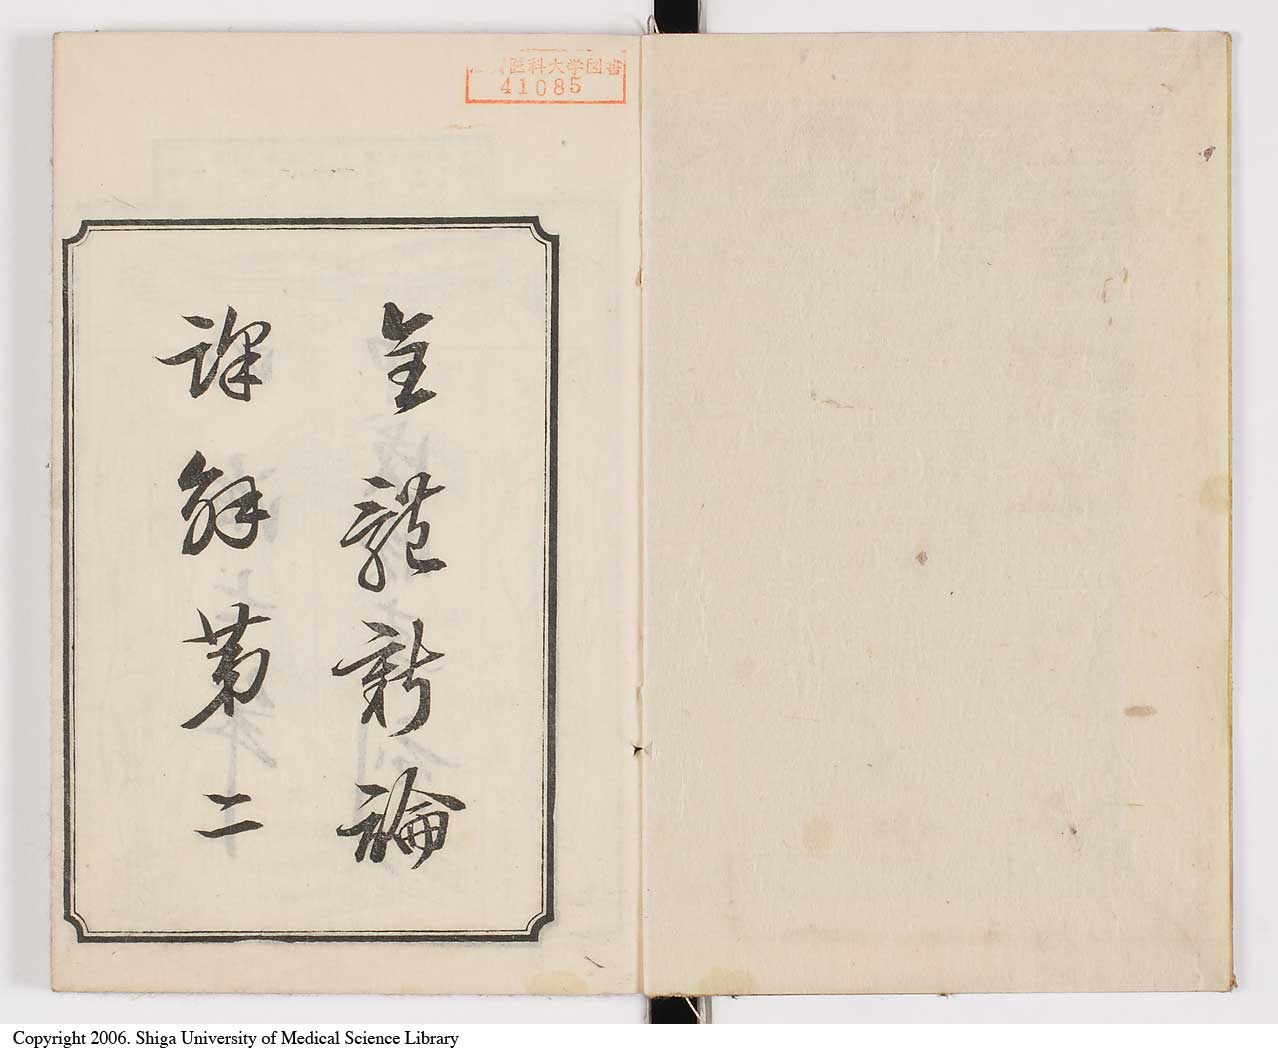 賀医科大学図書
41085
全體新論
譯解第二
Copyright 2006. Shiga University of Medical Science Library